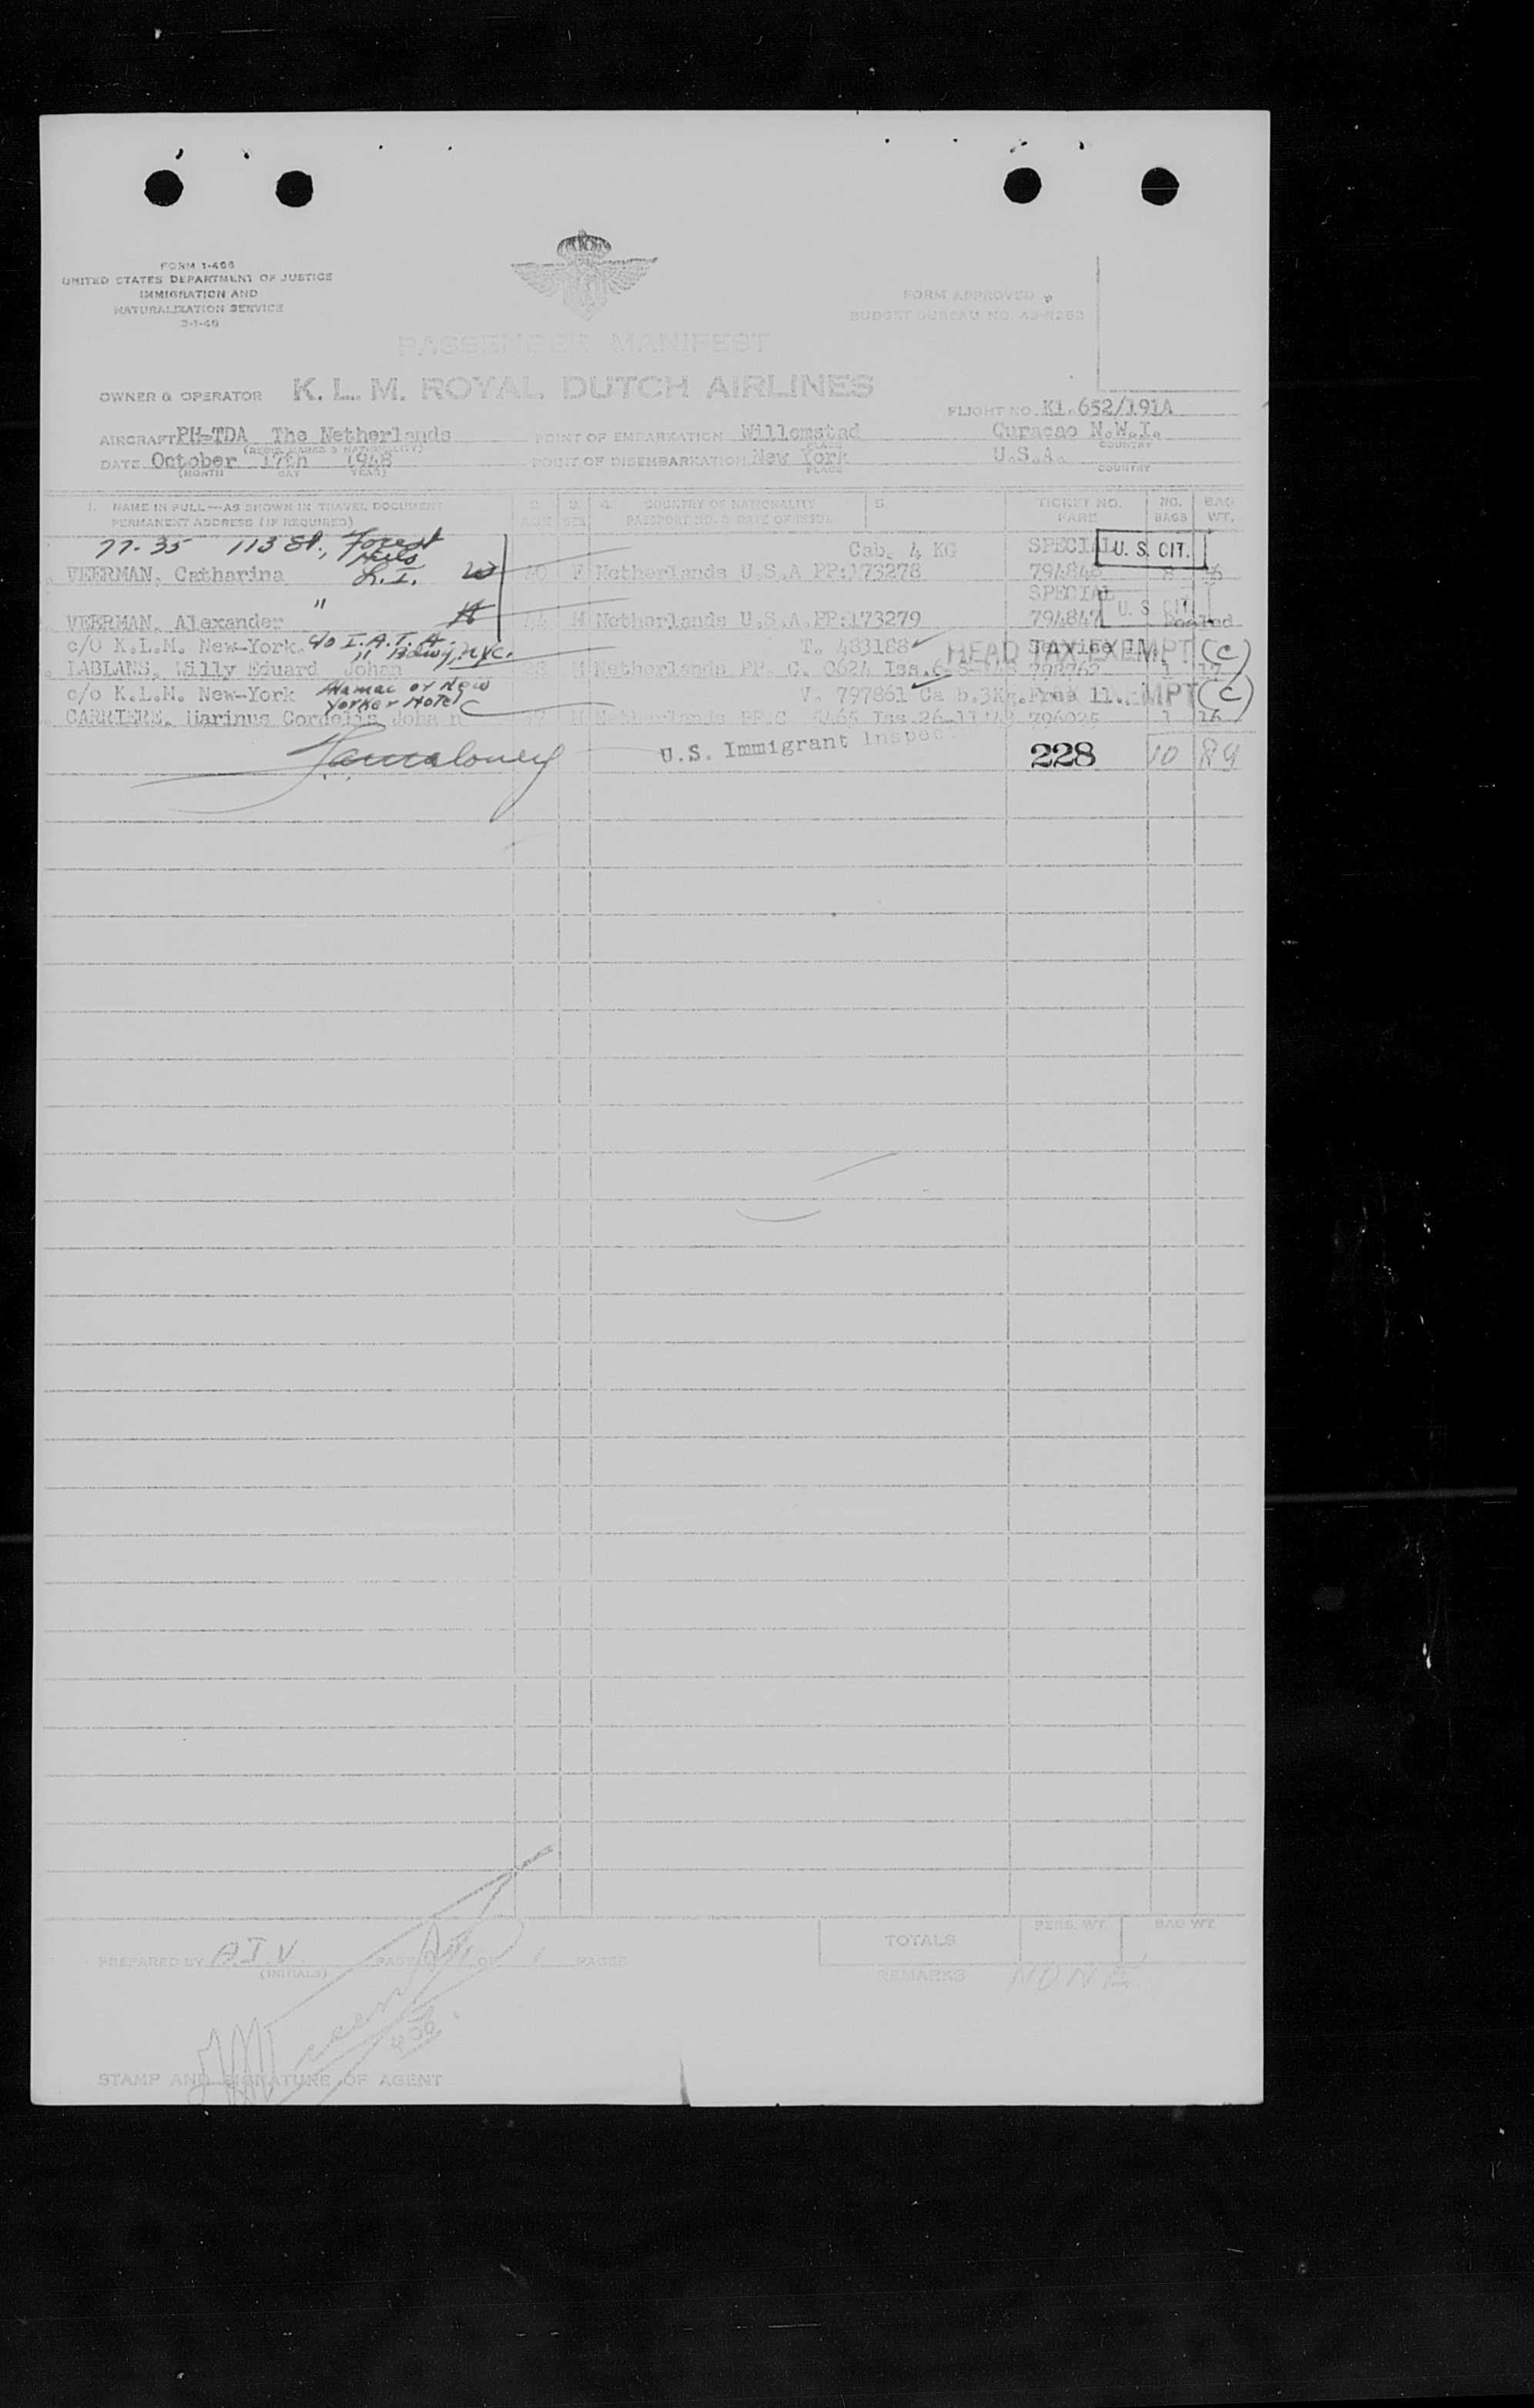 FORM 1-466
UNITED STATES DEPARTMENT OF JUSTICE
IMMIGRATION AND
NATURALIZATION SERVICE
3-1-46
FORM APPROVED
BUDGET BUREAU NO. 43-R252
PASSENGER MANIFEST
OWNER & OPERATOR K. L. M. ROYAL DUTCH AIRLINES
FLIGHT NO. Kl. 652/191A
AIRCRAFT PH-TDA The Netherlands POINT OF EMBARKATION Willemstad Curacao N.W.I.
(REGIS. MARKS & NATIONALITY) PLACE COUNTRY
DATE October 17th 1948 POINT OF DISEMBARKATION New York U.S.A.
(MONTH DAY YEAR) PLACE COUNTRY
1. NAME IN FULL—AS SHOWN IN TRAVEL DOCUMENT 2. 3. 4. COUNTRY OF NATIONALITY 5. TICKET NO. NO. BAG
PERMANENT ADDRESS (IF REQUIRED) AGE SEX PASSPORT NO. & DATE OF ISSUE FARE BAGS WT.
77-35 113 St., Forest Hills L.I. Cab. 4 KG SPECIAL U. S. CIT.
VEERMAN, Catharina W 40 F Netherlands U.S.A PP:173278 8
" SPECIAL U. S. CIT.
VEERMAN, Alexander 44 M Netherlands U.S.A. PP:173279 794847 Pooled
c/o K.L.M. New-York. c/o I.A.T.A. T. 483188 Service HEAD TAX EXEMPT (C)
" Bdwy, NYC.
LABLANS, Willy Eduard Johan 28 M Netherlands PP. C. 0624 Iss. 1 17
c/o K.L.M. New-York Alamac or New V. 797861 Ca b.3Kg. Free 11. EMPT (C)
Yorker Hotel
CARRIERE, Marinus Cordelis Joha n 37 M Netherlands PP.C 5465 Iss.26-11 796025 1 16
U.S. Immigrant Inspector 228 10 89
PERS. WT. BAG WT.
TOTALS
PREPARED BY A.J.V PAGE OF 1 PAGES
(INITIALS)
REMARKS NONE
STAMP AND SIGNATURE OF AGENT